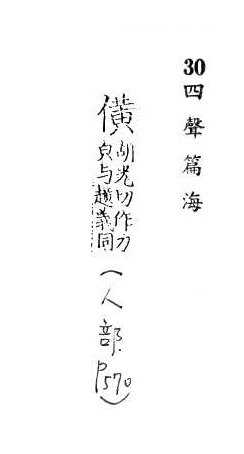 30 四聲篇海
僙
胡光切作力
皃与趪義同
(人部. P570)